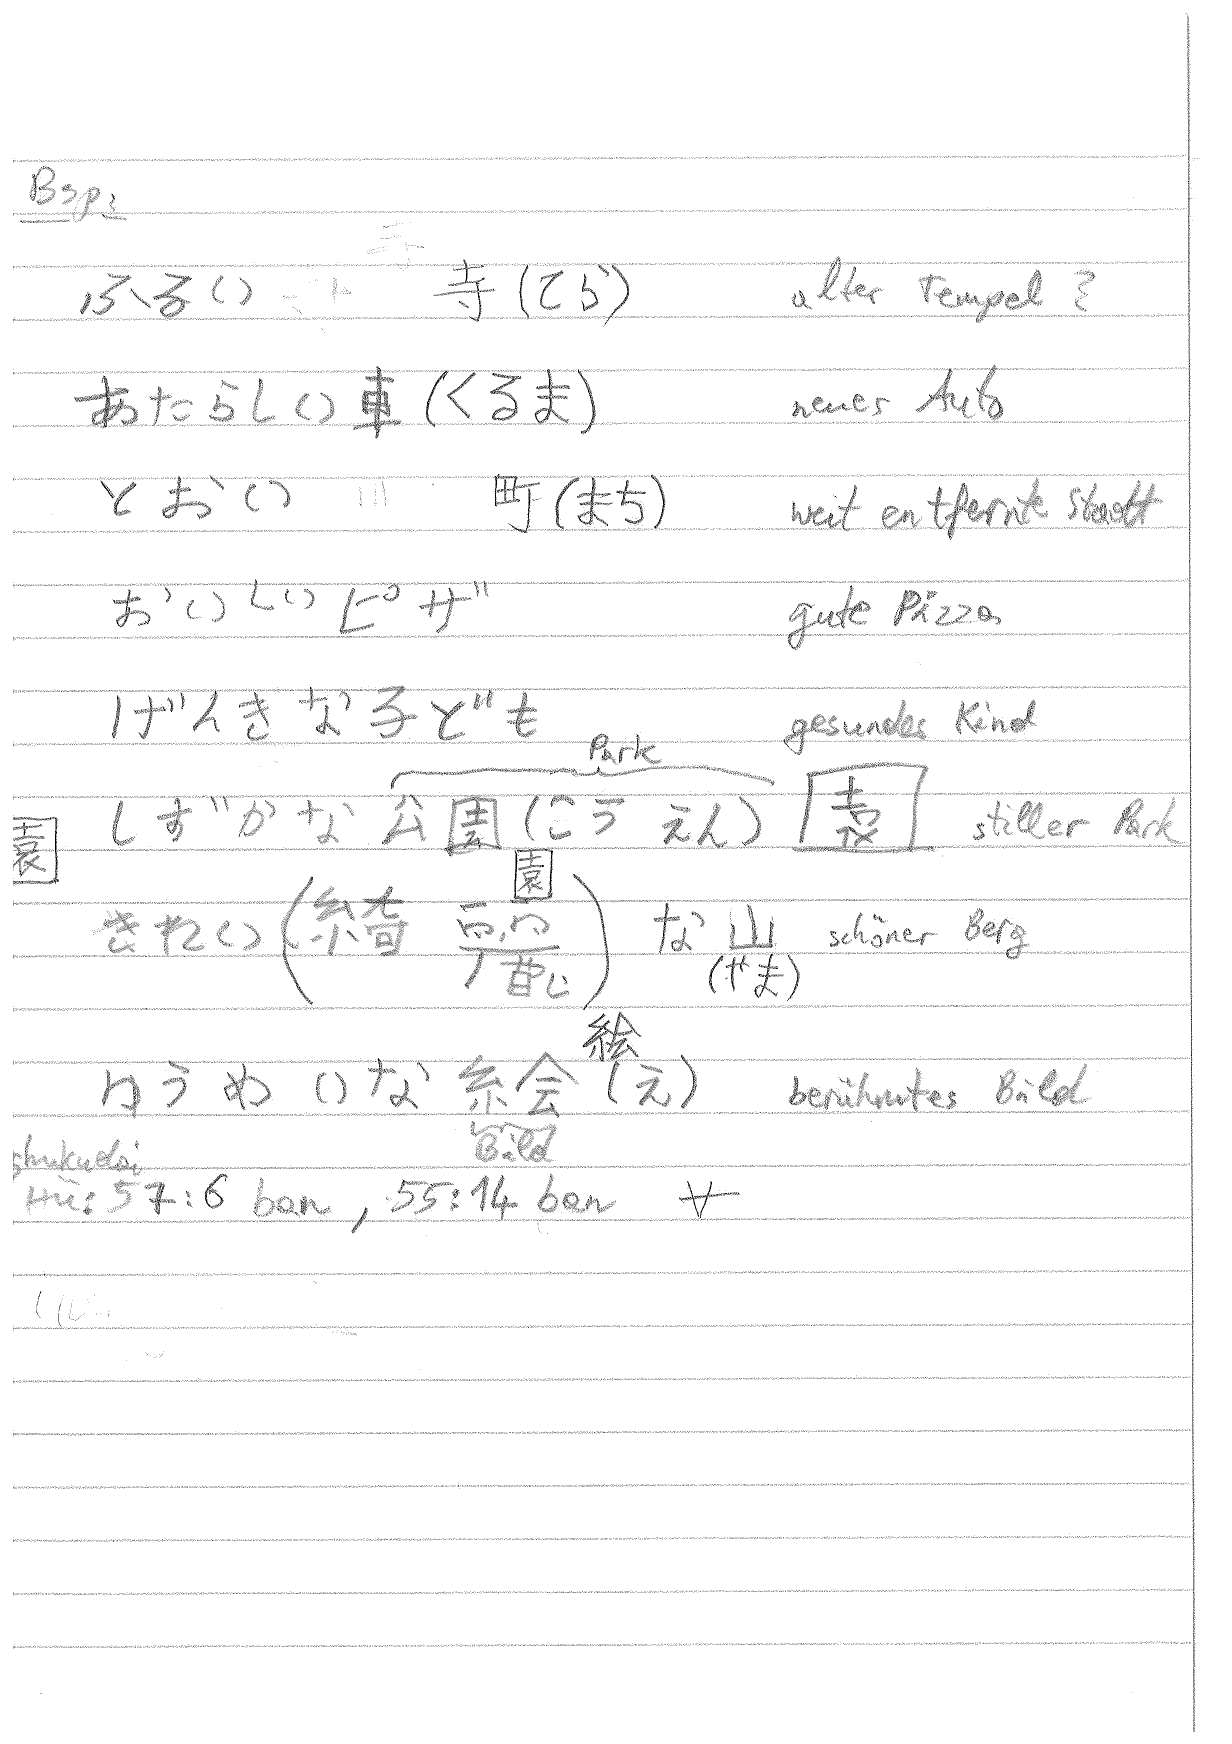 Bsp:
ふるい 寺(てら) alter Tempel
あたらしい車(くるま) neues Auto
とおい 町(まち) weit entfernte Stadt
おいしいピザ gute Pizza
げんきな子ども gesundes Kind
Park
しずかな公園(こうえん) 園 stiller Park
園
園
きれい(綺麗)な山 schöner Berg
(やま)
絵
ゆうめいな絵(え) berühmtes Bild
Bild
shukudai
HÜ: 57:6 ban, 55:14 ban